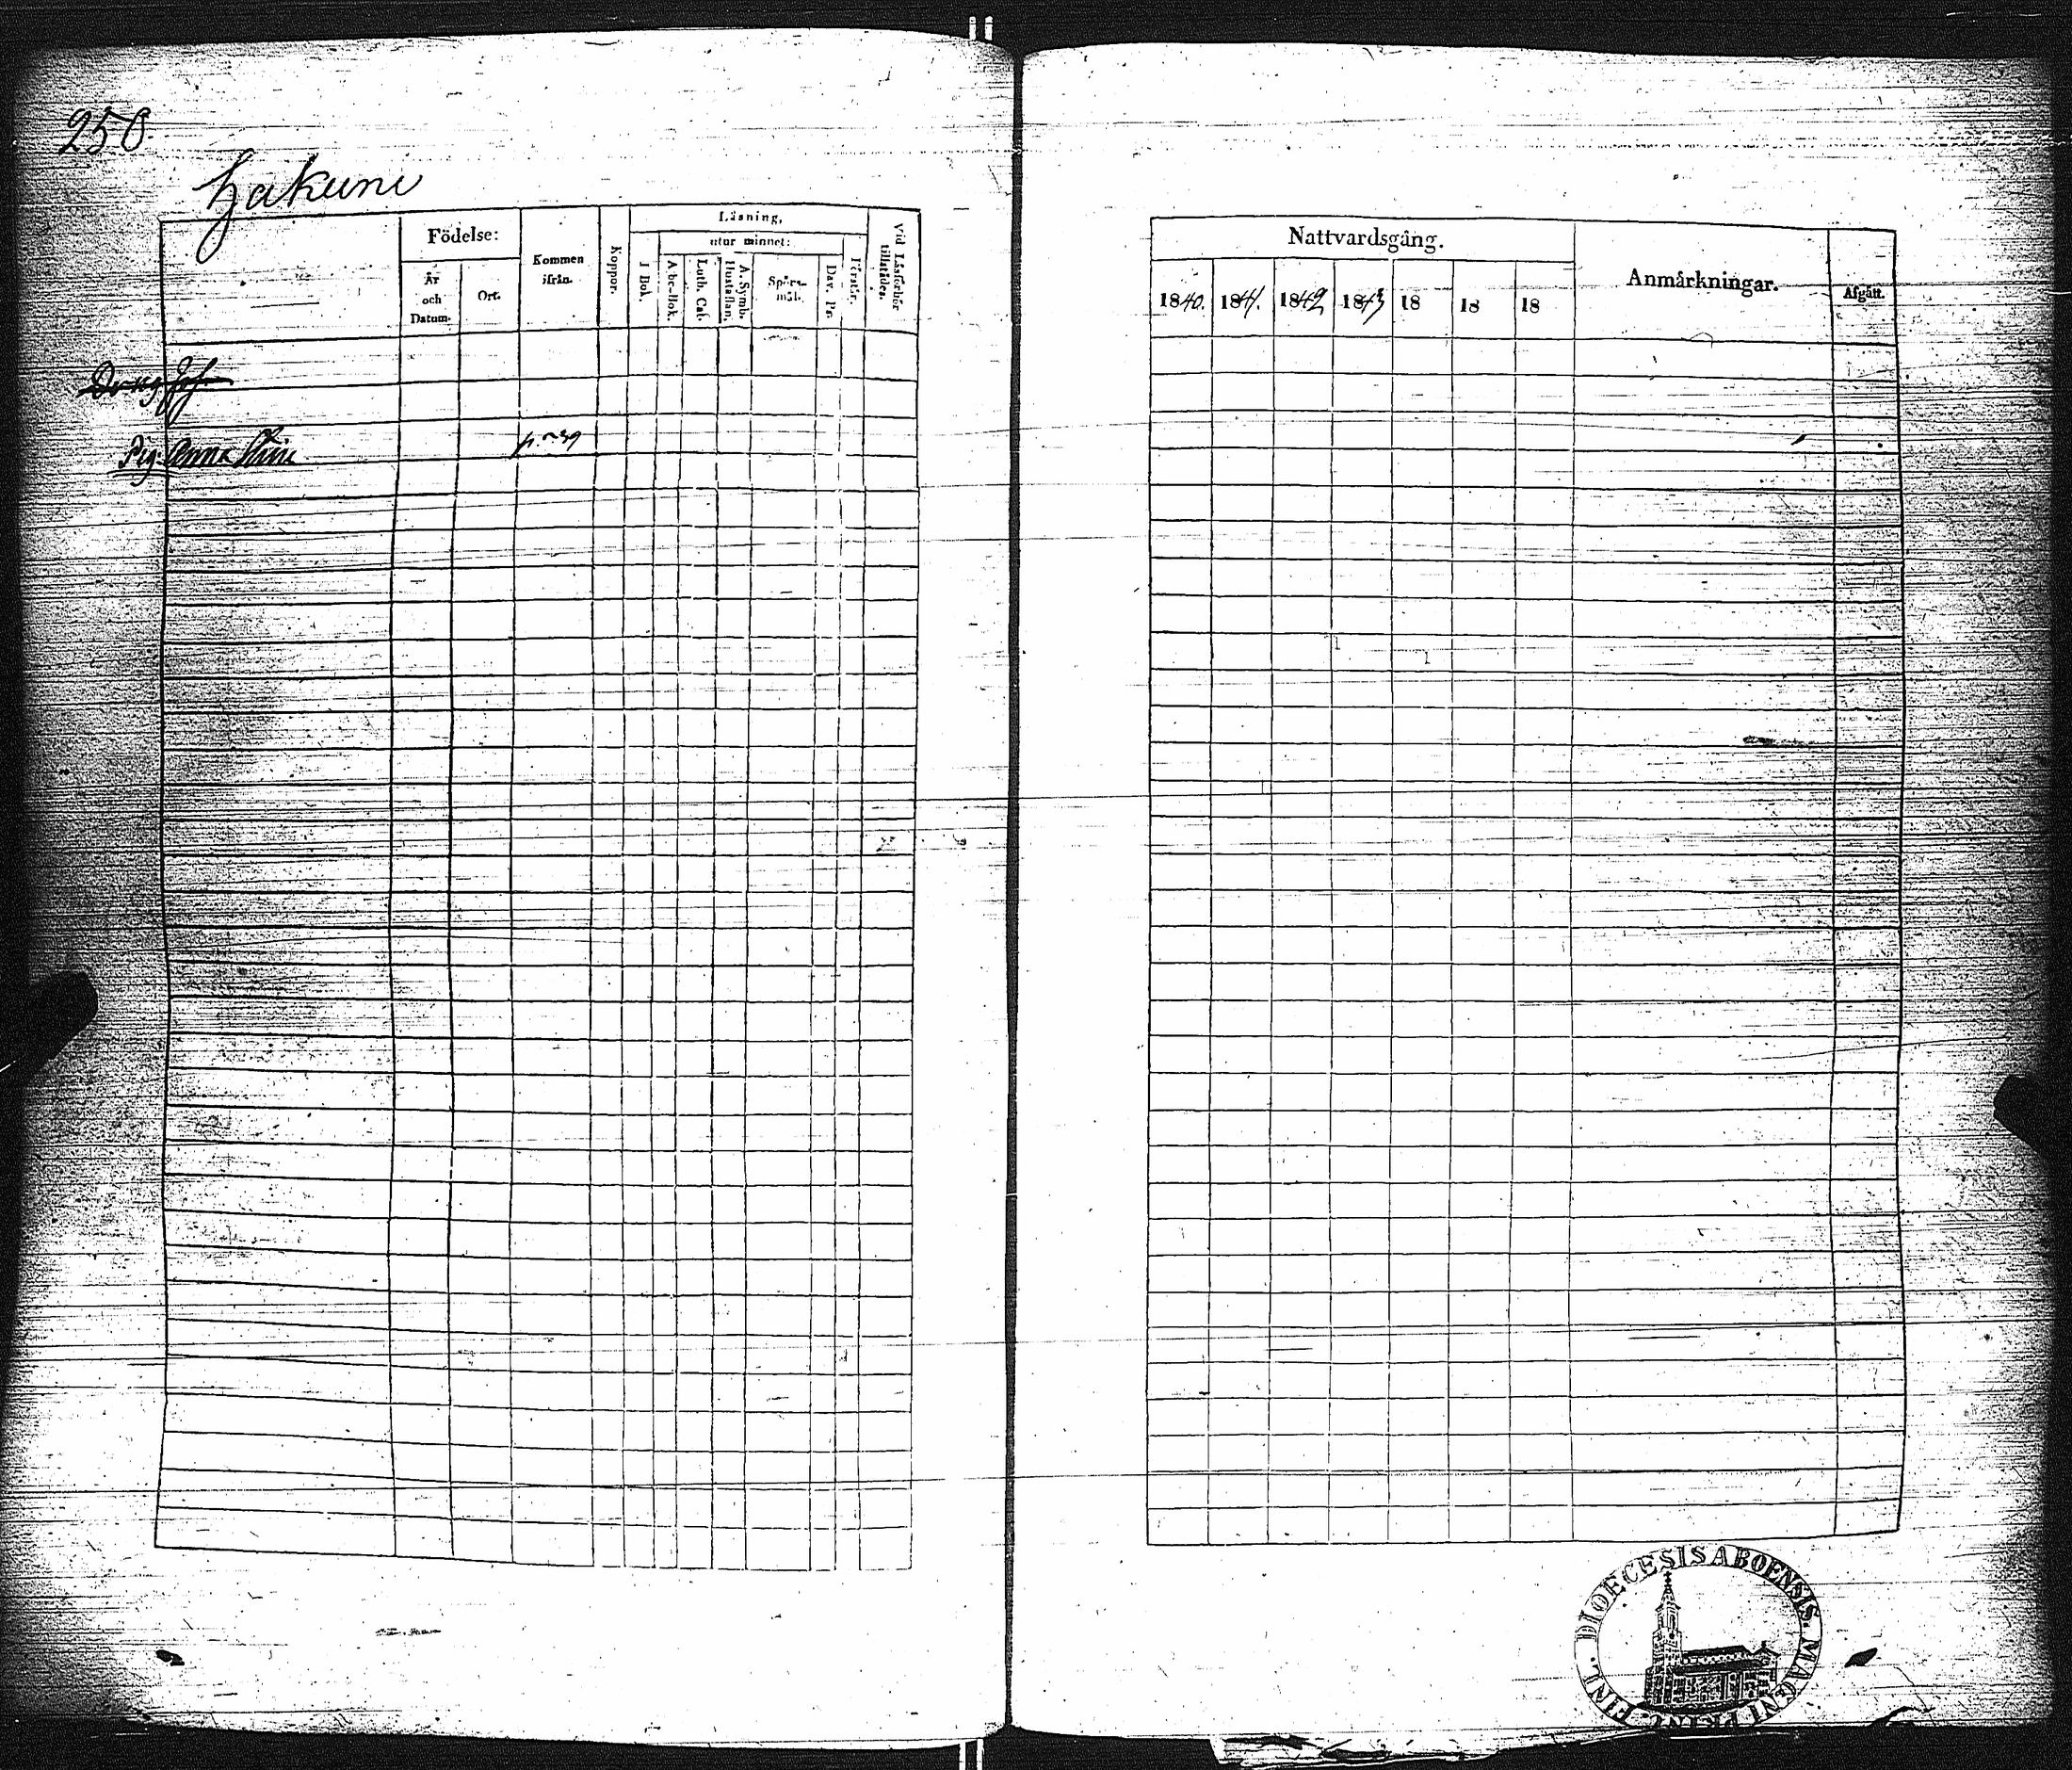 250
Hakuni
Födelse:
År och Datum.
Ort.
Kommen ifrån.
Koppor.
Läsning,
I Bok.
utur minnet:
A-b-c-Bok.
Luth. Cat.
A. Symb. Hustaflan.
Spörs-mål.
Dav. Ps.
Förstår.
Vid Läsförhör tillstädes.
Nattvardsgång.
1840.
1841.
1842
1843
18
18
18
Anmärkningar.
Afgått.
Dreng Joh
Pig. Anna Stina
p.
DIOECESIS ABOENSIS. MAGNI PRINC. FINL.